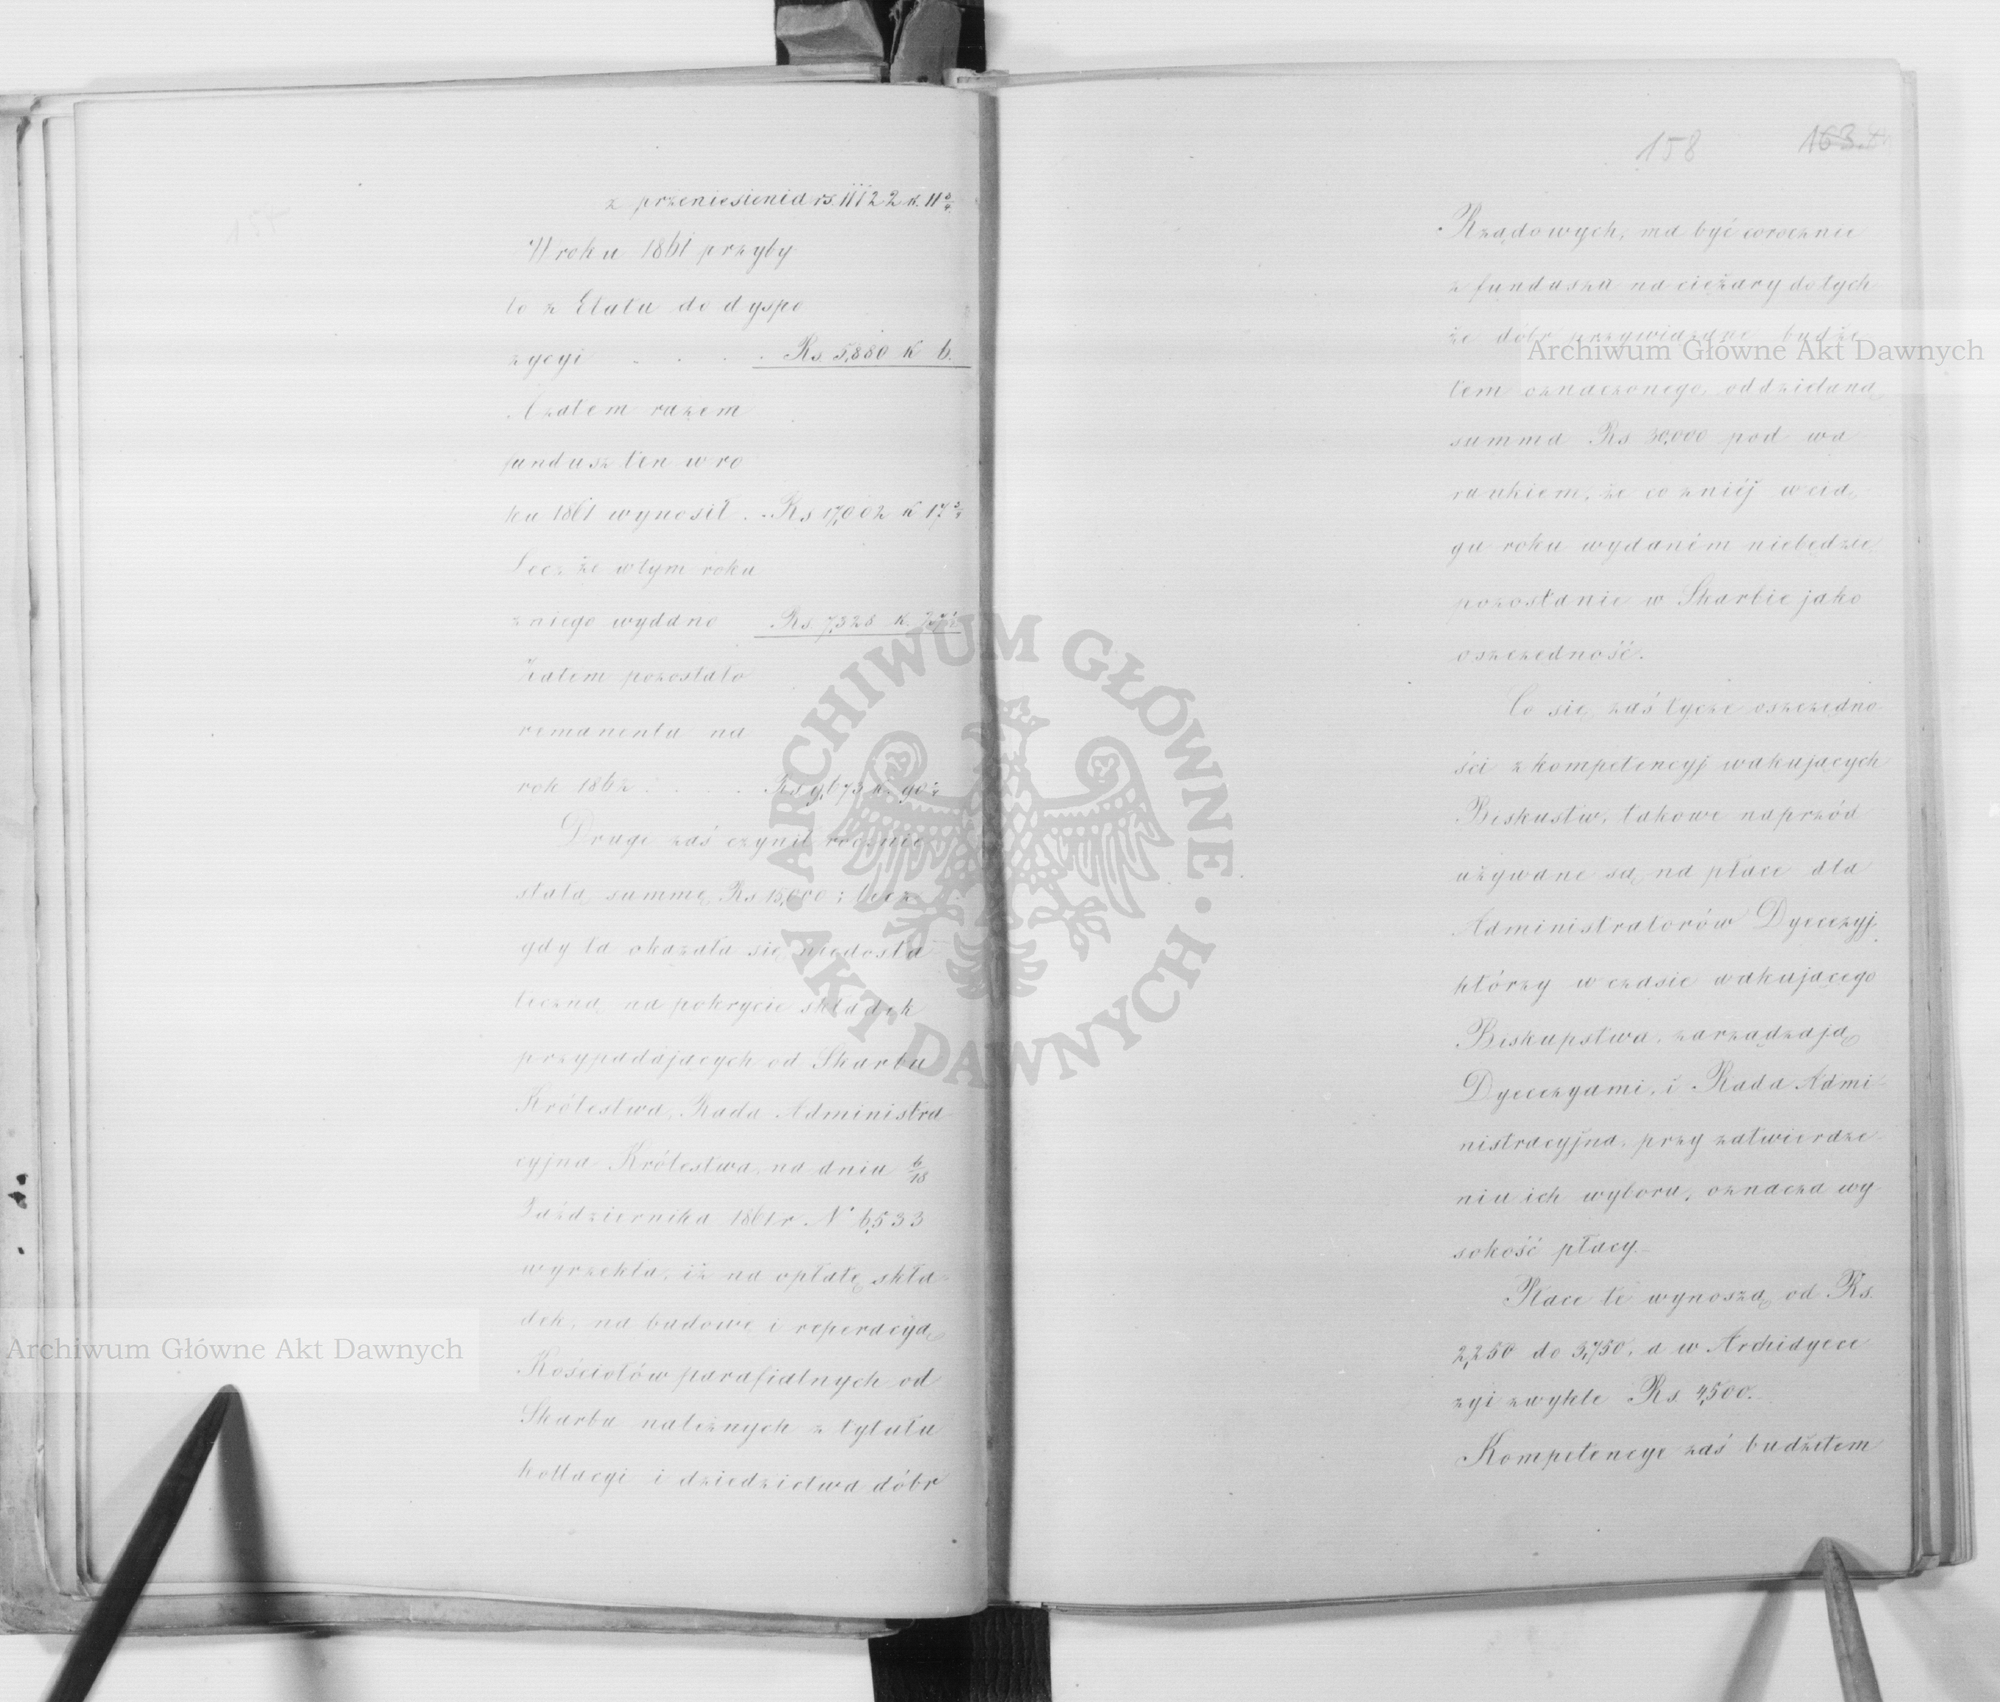 z przeniesienia rs. 11122 k. 11 3/4
W roku 1861 przyby
ło z Etatu do dyspo
zycyi . . . . Rs 5,880 k 6.
A zatem razem
fundusz ten w ro
ku 1861 wynosił . . Rs 17,002 k 17 3/4
Lecz że w tym roku
z niego wydano Rs 7,328 k.
Zatem pozostało
remanentu na
rok 1862 . . . . Rs
Drugi zaś czynił rocznie
stałą summę Rs 15,000; lecz
gdy ta okazała się niedosta
teczną na pokrycie składek
przypadających od Skarbu
Królestwa, Rada Administra
cyjna Królestwa, na dniu 6/18
Października 1861 r. N° 6,533
wyrzekła, iż na opłatę skła
dek, na budowę i reperacyą
Kościołów parafialnych od
Skarbu należnych z tytułu
kollacyi i dziedzictwa dóbr
158
163
Rządowych, ma być corocznie
z funduszu na ciężary do tych
że dóbr przywiązane budże
tem oznaczonego, oddzielaną
summa Rs 30,000 pod wa
runkiem, że co z niéj w cią
gu roku wydaném niebędzie
pozostanie w Skarbie jako
oszczędność.
Co się zaś tycze oszczędno
ści z kompetencyj wakujących
Biskustw, takowe naprzód
używane są na płace dla
Administratorów Dyecezyj
którzy w czasie wakującego
Biskupstwa, zarządzają
Dyecezyami, i Rada Admi
nistracyjna, przy zatwierdze
niu ich wyboru, oznacza wy
sokość płacy.
Płace te wynoszą od Rs.
2,250 do 3,750, a w Archidyece
zyi zwykle Rs 4,500.
Kompetencye zaś budżetem
Archiwum Główne Akt Dawnych
Archiwum Główne Akt Dawnych
ARCHIWUM GŁÓWNE
AKT DAWNYCH